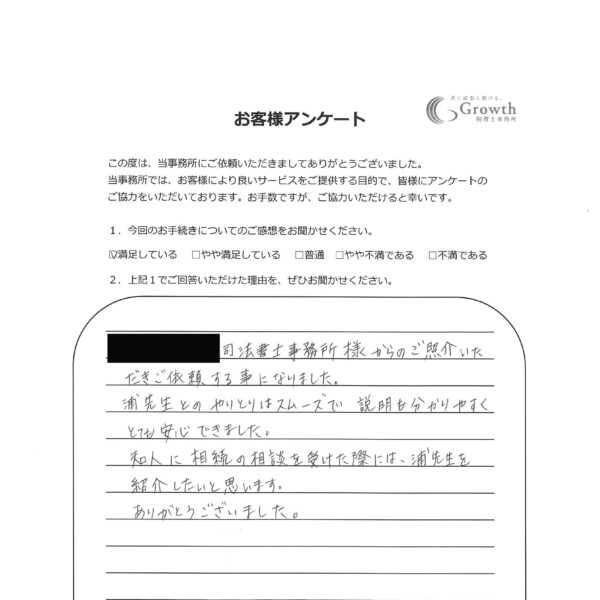 共に成長し続ける。
Growth
税理士事務所
お客様アンケート
この度は、当事務所にご依頼いただきましてありがとうございました。
当事務所では、お客様により良いサービスをご提供する目的で、皆様にアンケートの
ご協力をいただいております。お手数ですが、ご協力いただけると幸いです。
1．今回のお手続きについてのご感想をお聞かせください。
☑満足している □やや満足している □普通 □やや不満である □不満である
2．上記1でご回答いただけた理由を、ぜひお聞かせください。
司法書士事務所様からのご照介いた
だきご依頼する事になりました。
浦先生とのやりとりはスムーズで 説明も分かりやすく
とても安心できました。
知人に相続の相談を受けた際には、浦先生を
紹介したいと思います。
ありがとうございました。